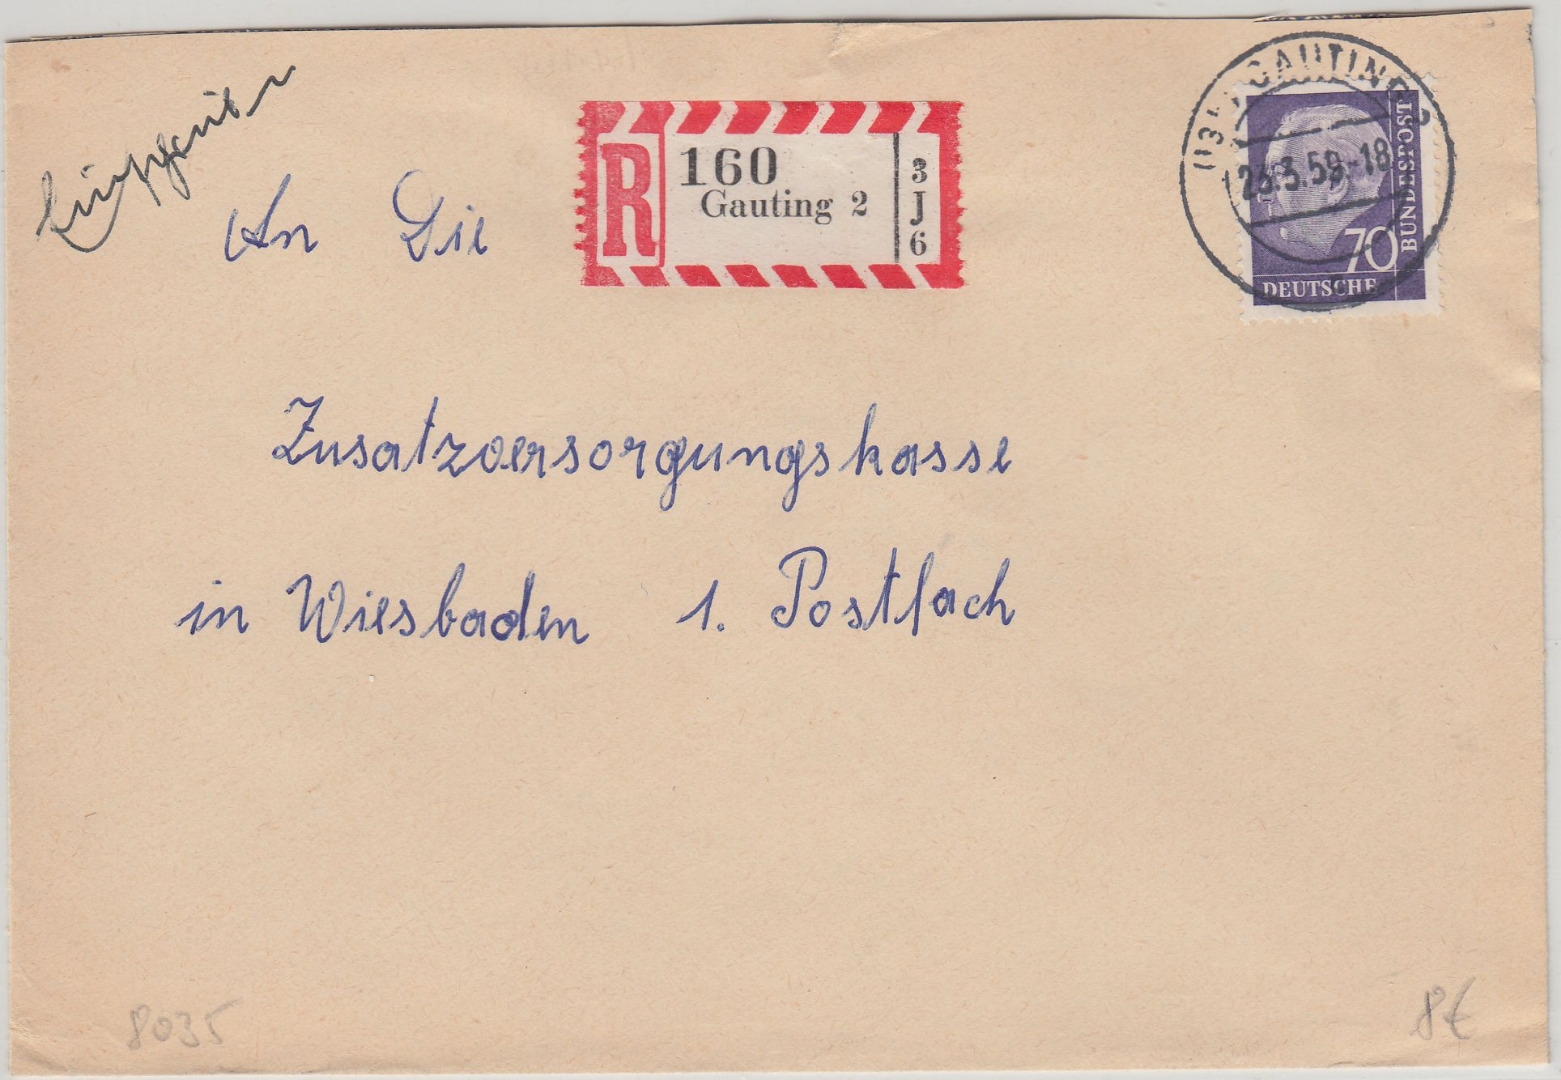 Einschreiben
R
160
Gauting 2
3
J
6
GAUTING
23.3.59.-18
70
BUNDESPOST
DEUTSCHE
An Die
Zusatzversorgungskasse
in Wiesbaden 1. Postfach
8035
8€